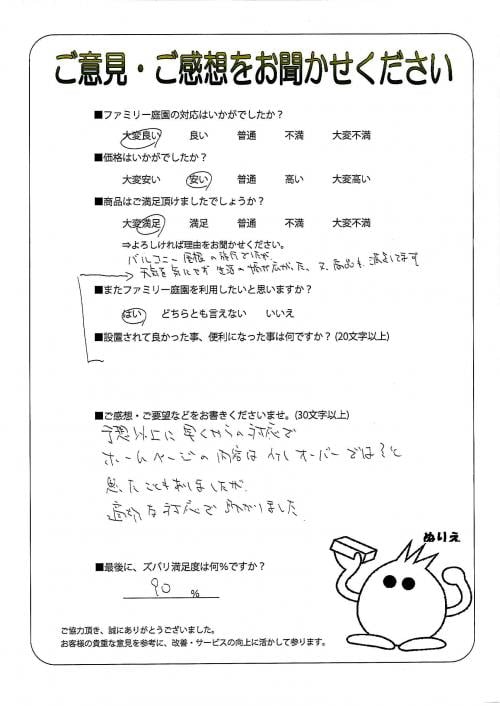 ご意見・ご感想をお聞かせください
■ファミリー庭園の対応はいかがでしたか？
大変良い 良い 普通 不満 大変不満
■価格はいかがでしたか？
大変安い 安い 普通 高い 大変高い
■商品はご満足頂けましたでしょうか？
大変満足 満足 普通 不満 大変不満
⇒よろしければ理由をお聞かせください。
バルコニー屋根の
天気を気にせず生活の 広がった、又、商品も満足してます
■またファミリー庭園を利用したいと思いますか？
はい どちらとも言えない いいえ
■設置されて良かった事、便利になった事は何ですか？(20文字以上)
■ご感想・ご要望などをお書きくださいませ。(30文字以上)
予想以上に早くからの対応で
ホームページの内容は少しオーバーでは？と
思ったこともありましたが
適切な対応で助かりました
ぬりえ
■最後に、ズバリ満足度は何％ですか？
90 %
ご協力頂き、誠にありがとうございました。
お客様の貴重な意見を参考に、改善・サービスの向上に活かして参ります。